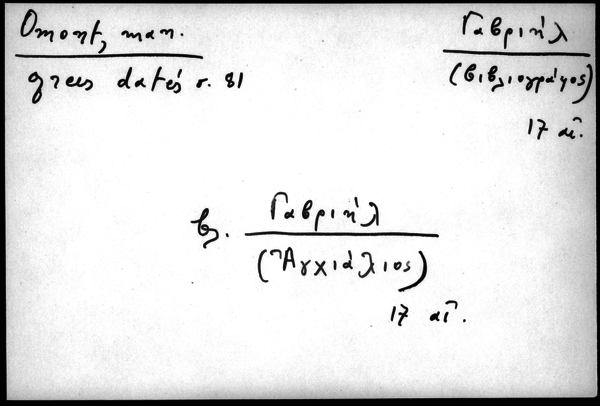 Omont, man.
grecs datés σ. 81
Γαβριήλ
(βιβλιογράφος)
17 αἰ.
βλ. Γαβριήλ
(Ἀγχιάλιος)
17 αἰ.